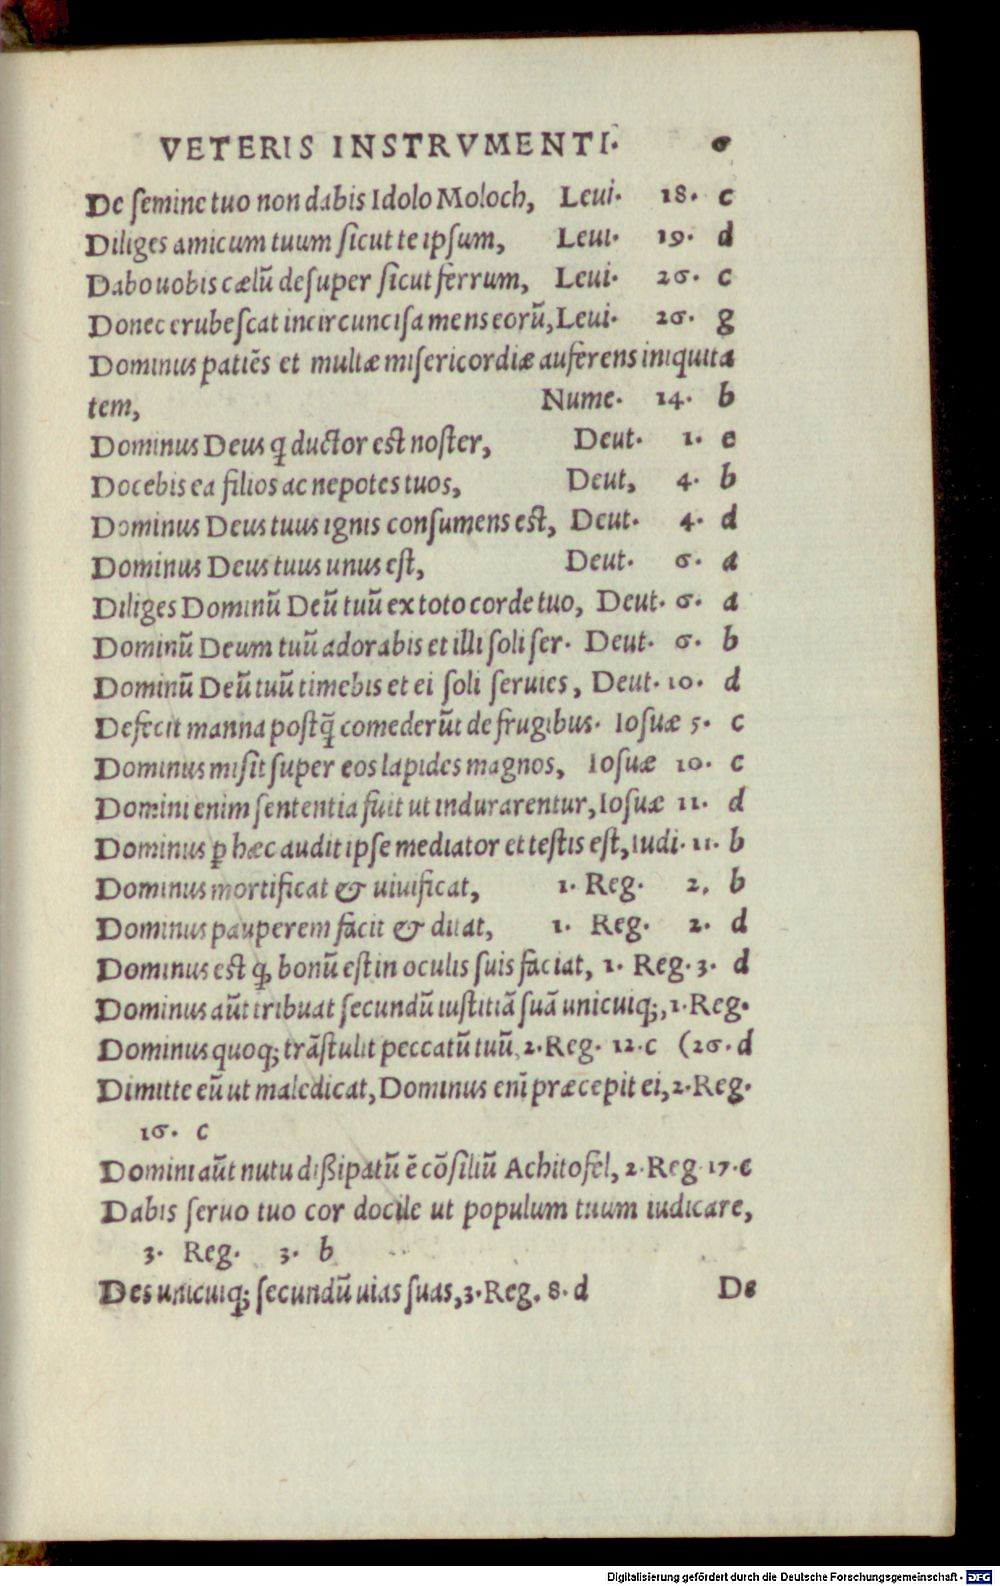 VETERIS INSTRVMENTI. 6
De ſemine tuo non dabis Idolo Moloch, Leui. 18. c
Diliges amicum tuum ſicut te ipſum, Leui. 19. d
Dabo uobis cælū deſuper ſicut ferrum, Leui. 26. c
Donec erubeſcat incircunciſa mens eorū, Leui. 26. g
Dominus patiēs et multæ miſericordiæ auferens iniquita
tem, Nume. 14. b
Dominus Deus q̃ ductor eſt noſter, Deut. 1. e
Docebis ea filios ac nepotes tuos, Deut, 4. b
Dominus Deus tuus ignis conſumens eſt, Deut. 4. d
Dominus Deus tuus unus eſt, Deut. 6. a
Diliges Dominū Deū tuū ex toto corde tuo, Deut. 6. a
Dominū Deum tuū adorabis et illi ſoli ſer. Deut. 6. b
Dominū Deū tuū timebis et ei ſoli ſeruies, Deut. 10. d
Defecit manna poſtq̄ comederūt de frugibus. Ioſuæ 5. c
Dominus miſit ſuper eos lapides magnos, Ioſuæ 10. c
Domini enim ſententia fuit ut indurarentur, Ioſuæ 11. d
Dominus ꝑ hæc audit ipſe mediator et teſtis eſt, Iudi. 11. b
Dominus mortificat & uiuificat, 1. Reg. 2, b
Dominus pauperem facit & ditat, 1. Reg. 2. d
Dominus eſt ꝙ bonū eſt in oculis ſuis faciat, 1. Reg. 3. d
Dominus aūt tribuat ſecundū iuſtitiā ſuā unicuiq;, 1. Reg.
Dominus quoq; trāſtulit peccatū tuū, 2. Reg. 12. c (26. d
Dimitte eū ut maledicat, Dominus enī præcepit ei, 2. Reg.
16. c
Domini aūt nutu dißipatū ē cōſiliū Achitofel, 2. Reg. 17. c
Dabis ſeruo tuo cor docile ut populum tuum iudicare,
3. Reg. 3. b
Des unicuiq; ſecundū uias ſuas, 3. Reg. 8. d De
Digitalisierung gefördert durch die Deutsche Forschungsgemeinschaft - DFG